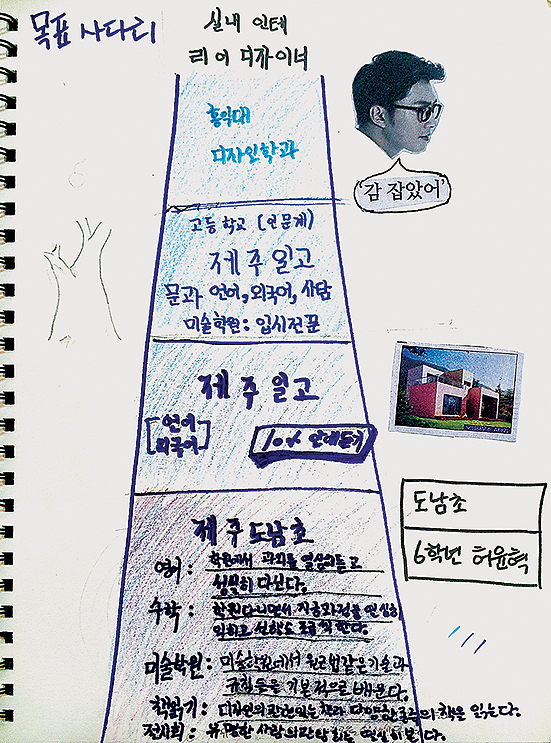 목표 사다리
실내 인테
리어 디자이너
홍익대
디자인학과
'감 잡았어'
고등학교 (인문계)
제주일고
문과 언어, 외국어, 사탐
미술학원: 입시전문
제주일고
[언어
외국어]
10% 안에들기
도남초
6학년 허윤혁
제주도남초
영어: 학원에서 과외를 열심히듣고
성실히 다닌다.
수학: 학원다니면서 지금과정을 열심히
익히고 선행도 조금씩 한다.
미술학원: 미술학원에서 원근법같은기술과
규칙등을 기본적으로 배운다.
책읽기: 디자인의 관련있는 책과 다양한 의 책을 읽는다.
전시회: 유명한 사람의 전시회는 열심히 본다.